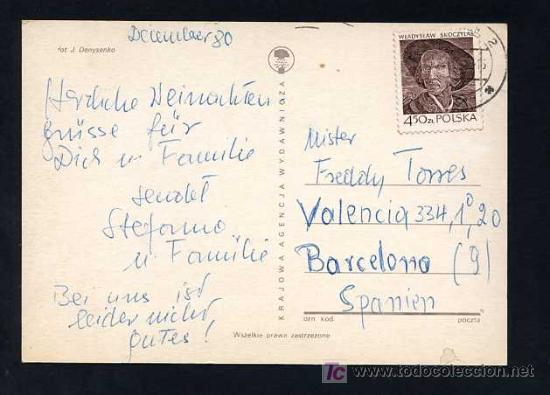 fot J. Denysenko
Dezember 80
Herzliche Weinachten
grüsse für
Dich u Familie
sendet
Stefania
u Familie
Bei uns ist
leider nicht
gutes!
KRAJOWA AGENCJA WYDAWNICZA
WŁADYSŁAW SKOCZYLAS
4,50 ZŁ POLSKA
Mister
Freddy Torres
Valencia 334, 1º, 20
Barcelona (9)
Spanien
ozn kod.
poczta
Wszelkie prawa zastrzeżone
todocoleccion.net